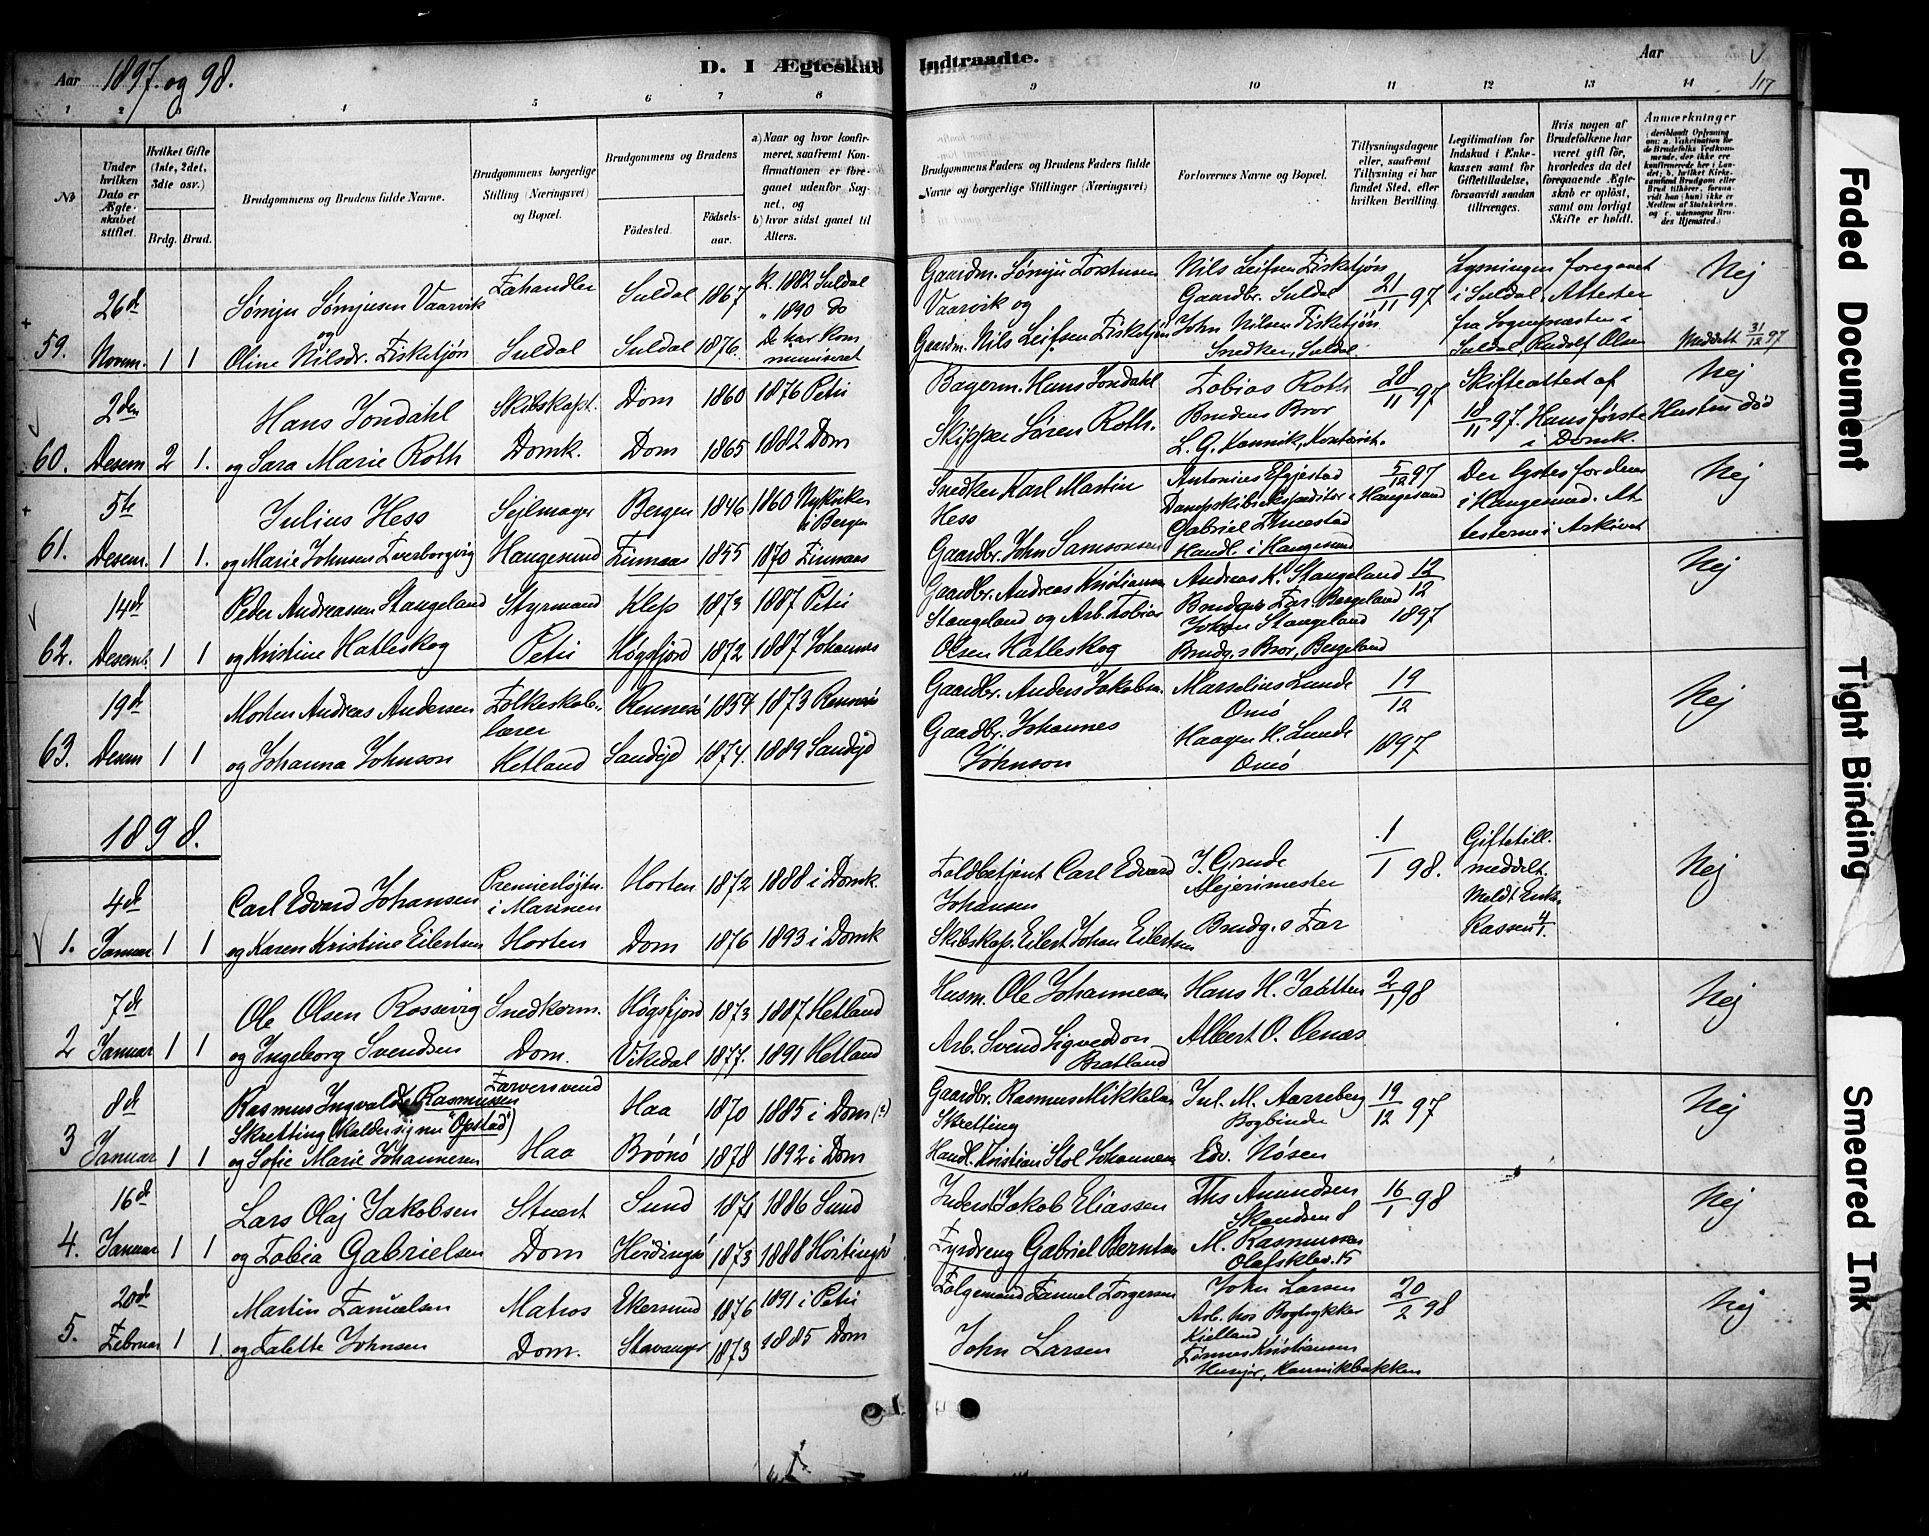 Aar 1897 og 98.
D. I Ægteskab Indtraadte.
Aar
117
1 2 3 4 5 6 7 8 9 10 11 12 13 14
No
Under hvilken Dato er Ægteskabet stiftet.
Hvilket Gifte (1ste, 2det, 3die osv.)
Brdg. Brud.
Brudgommens og Brudens fulde Navne.
Brudgommens borgerlige Stilling (Næringsvei) og Bopæl.
Brudgommens og Brudens
Fødested.
Fødselsaar.
a) Naar og hvor konfirmeret, saafremt Konfirmationen er foregaaet udenfor Sognet, og
b) hvor sidst gaaet til Alters.
Brudgommens Faders og Brudens Faders fulde Navne og borgerlige Stillinger (Næringsvei)
Forlovernes Navne og Bopæl.
Tillysningsdagene eller, saafremt Tillysning ei har fundet Sted, efter hvilken Bevilling.
Legitimation for Indskud i Enkekassen samt for Giftetilladelse, forsaavidt saadan tiltrænges.
Hvis nogen af Brudefolkene har været gift før, hvorledes da det foregaaende Ægteskab er opløst, samt om lovligt Skifte er holdt.
Anmærkninger
59. 26de Novem. 1 1
Sømju Sømjusen Vaarvik
og
Oline Nilsdr. Fisketjøn
Fæhandler Suldal
Suldal 1867 k. 1882 Suldal
" 1890 do
Suldal 1876. De har kommuniceret
Gaardm. Sømju Torstensen Vaarvik og
Gaardm. Nils Leifsen Fisketjøn
Nils Leifsen Fisketjøn
Gaardbr. Suldal
John Nilsen Fisketjøn
Snedker, Suldal
21/11 97
Lysningen foregaaet i Suldal. Attester fra Sognepræsten i Suldal, Rudolf Olsen
Nej
Meddelt 31/12 97
60. 2den Desem 2 1.
Hans Jondahl
og Sara Marie Roth
Skibskapt. Domk.
Dom 1860 1876 Petri
Dom 1865 1882 Dom
Bagerm. Hans Jondahl
Skipper Søren Roth.
Tobias Roth
Brudens Bror
L. G. Kannik, Kontorist.
28/11 97
Skifteattest af 18/11 97. Hans første Hustru død i Domk.
Nej
61. 5te Desem. 1 1.
Julius Hess
og Marie Johnsen Tverborgvig
Sejlmager Haugesund
Bergen 1846 1860 Nykirken i Bergen
Finnaas 1855 1870 Finnaas
Snedker Karl Martin Hess
Gaardbr. John Samsonsen
Antonius Egjestad
Dampskibsekspeditør i Haugesund
Gabriel Timestad
Handl. i Haugesund
5/12 97
Der lystes for dem i Haugesund. Attesterne i Arkivet
Nej
62. 14de Desemb. 1 1
Peder Andreasen Stangeland
og Kristine Hatleskog
Styrmand Petri
Klep 1873 1887 Petri
Høgsfjord 1872 1887 Johannes
Gaardbr. Andreas Kristiansen Stangeland og Arb. Tobias Olsen Hatleskog
Andreas K. Stangeland
Brudgs Far, Bergeland
Johan Stangeland
Brudg.s Bror, Bergeland
12/12 1897
Nej
63. 19de Desem 1 1
Morten Andreas Andersen
og Johanna Johnson
Folkeskolelærer Hetland
Rennesø 1854 1873 Rennesø
Sandeid 1874. 1889 Sandeid
Gaardbr. Anders Jakobsen
Gaardbr. Johannes Johnson
Marselius Lunde
Omø
Haagen H. Lunde
Omø
19/12 1897
Nej
1898.
1. 4de Januar 1 1
Carl Edvard Johansen
og Karen Kristine Eilertsen
Premierløjtn. i Marinen Horten
Horten 1872 1888 i Domk.
Dom 1876 1893 i Domk
Toldbetjent Carl Edvard Johansen
Skibskap. Eilert Johan Eilertsen
J. Grude
Mejerimester
Brudg.s Far
1/1 98.
Giftetill. meddelt. Meldt Enkekassen 4/1.
Nej
2 7de Januar 1 1
Ole Olsen Rossevig
og Ingeborg Svendsen
Snedkerm. Dom.
Høgsfjord 1873 1887 Hetland
Vikedal 1877. 1891 Hetland
Husm. Ole Johannesen
Arb. Svend Sigvedson Bratland
Hans H. Jaatten
Albert O. Oenæs
2/1 98
Nej
3 8de Januar 1 1
Rasmus Ingvald Rasmussen
Skretting (kalder sig nu "Opstad")
og Sofie Marie Johannesen
Farversvend Haa
Haa 1870 1885 i Dom (?)
Brønø 1878 1892 i Dom
Gaardbr. Rasmus Mikkelsen Skretting
Handl. Kristian Stol Johannesen
Jul. M. Aarreberg
Bogbinder
Edv. Nøsen
19/12 97
Nej
4. 16de Januar 1 1
Lars Olaj Jakobsen
og Tobia Gabrielsen
Stuert Dom
Sund 1871 1886 Sund
Hvidingsø 1873 1888 Hvitingsø
Inderst Jakob Eliassen
Fyrdreng Gabriel Berntsen
Ths Amundsen
Skandsen 8
M. Rasmussen
Olafsklev. 15
16/1 98
Nej
5. 20de Februar 1 1.
Martin Samuelsen
og Talette Johnsen
Matros Dom.
Ekersund 1876 1891 i Petri
Stavanger 1873 1885 Dom
Følgemand Samuel Torgersen
John Larsen
John Larsen
Arb. hos Bogtrykker Kielland
Tønnes Kristiansen
Husejer, Kannikbakken
20/2 98
Nej
Faded Document
Tight Binding
Smeared Ink